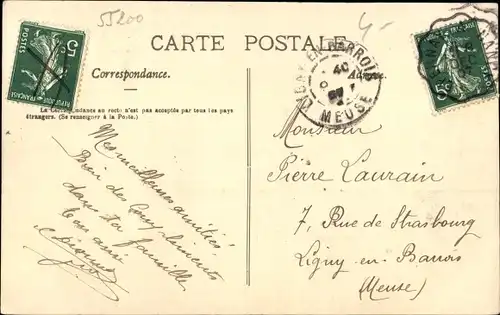 55200
4-
CARTE POSTALE
Correspondance.
Adresse.
La Correspondance au recto n'est pas acceptée par tous les pays
étrangers. (Se renseigner à la Poste.)
POSTES
5c
LIGNY-EN-BARROIS
MEUSE
Mes meilleures amitiés
Bien des Compliments
dans ta famille
Ton ami
Monsieur
Pierre Laurain
7, Rue de Strasbourg
Ligny-en-Barrois
(Meuse)